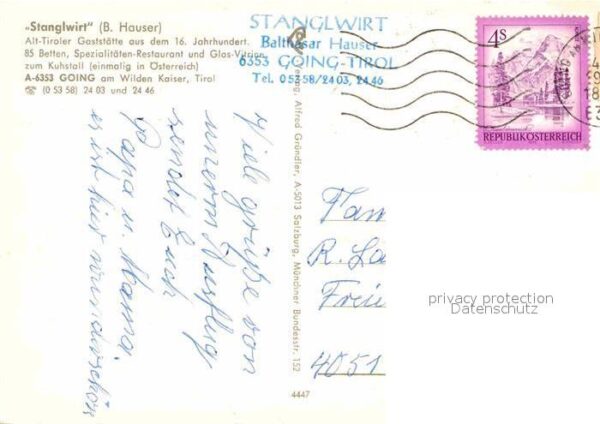 „Stanglwirt“ (B. Hauser)
Alt-Tiroler Gaststätte aus dem 16. Jahrhundert.
85 Betten, Spezialitäten-Restaurant und Glas-Vitrinen
zum Kuhstall (einmalig in Österreich)
A-6353 GOING am Wilden Kaiser, Tirol
☎ (0 53 58) 24 03 und 24 46
STANGLWIRT
Balthasar Hauser
6353 GOING-TIROL
Tel. 05358/2403, 2446
4S
REPUBLIK ÖSTERREICH
Viele grüße von
unserm Ausflug
sendet Euch
Papa u. Mama.
es ist hier wunderschön
Alfred Gründler, A-5013 Salzburg, Münchner Bundesstr. 152
4447
Fam
R. La
Frei
4051
privacy protection
Datenschutz